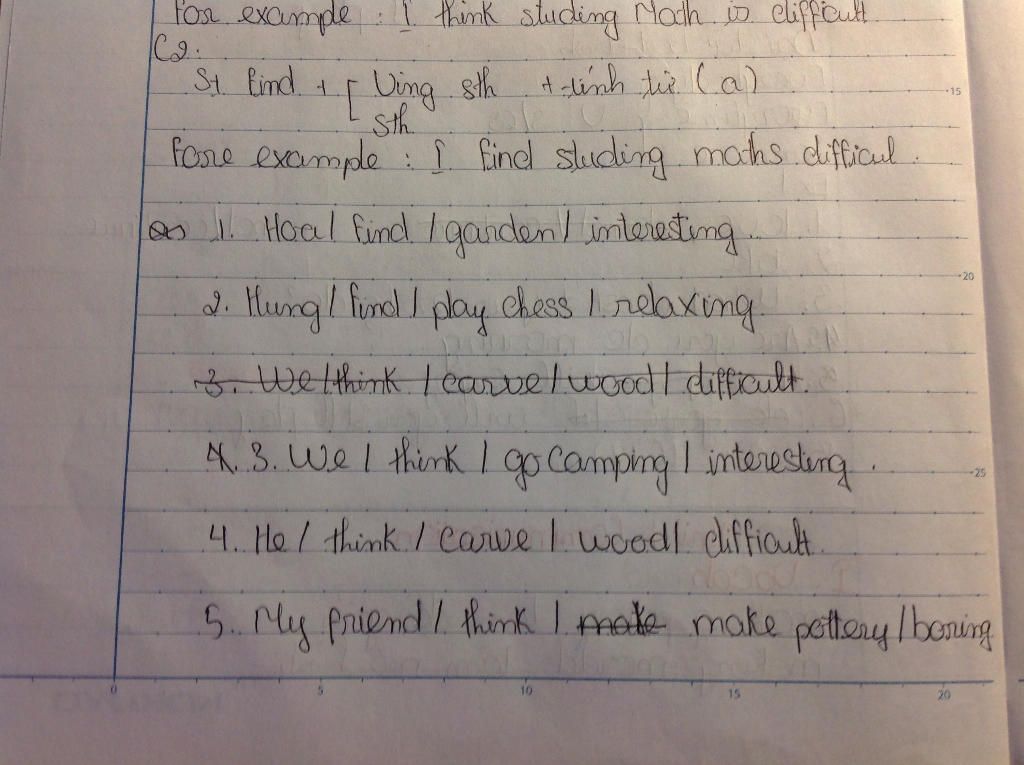 For example : I think studing Math is difficult
C2:
St find + [ Ving sth + tính từ ( a )
Sth
Fore example : I find studing maths difficul .
1. Hoa / find / garden / interesting .
2. Hung / find / play chess / relaxing
3. We / think / carve / wood / difficult.
4. 3. We / think / go camping / interesting .
4. He / think / carve / wood / difficult.
5. My friend / think / make make pottery / boring
15
20
25
0 5 10 15 20